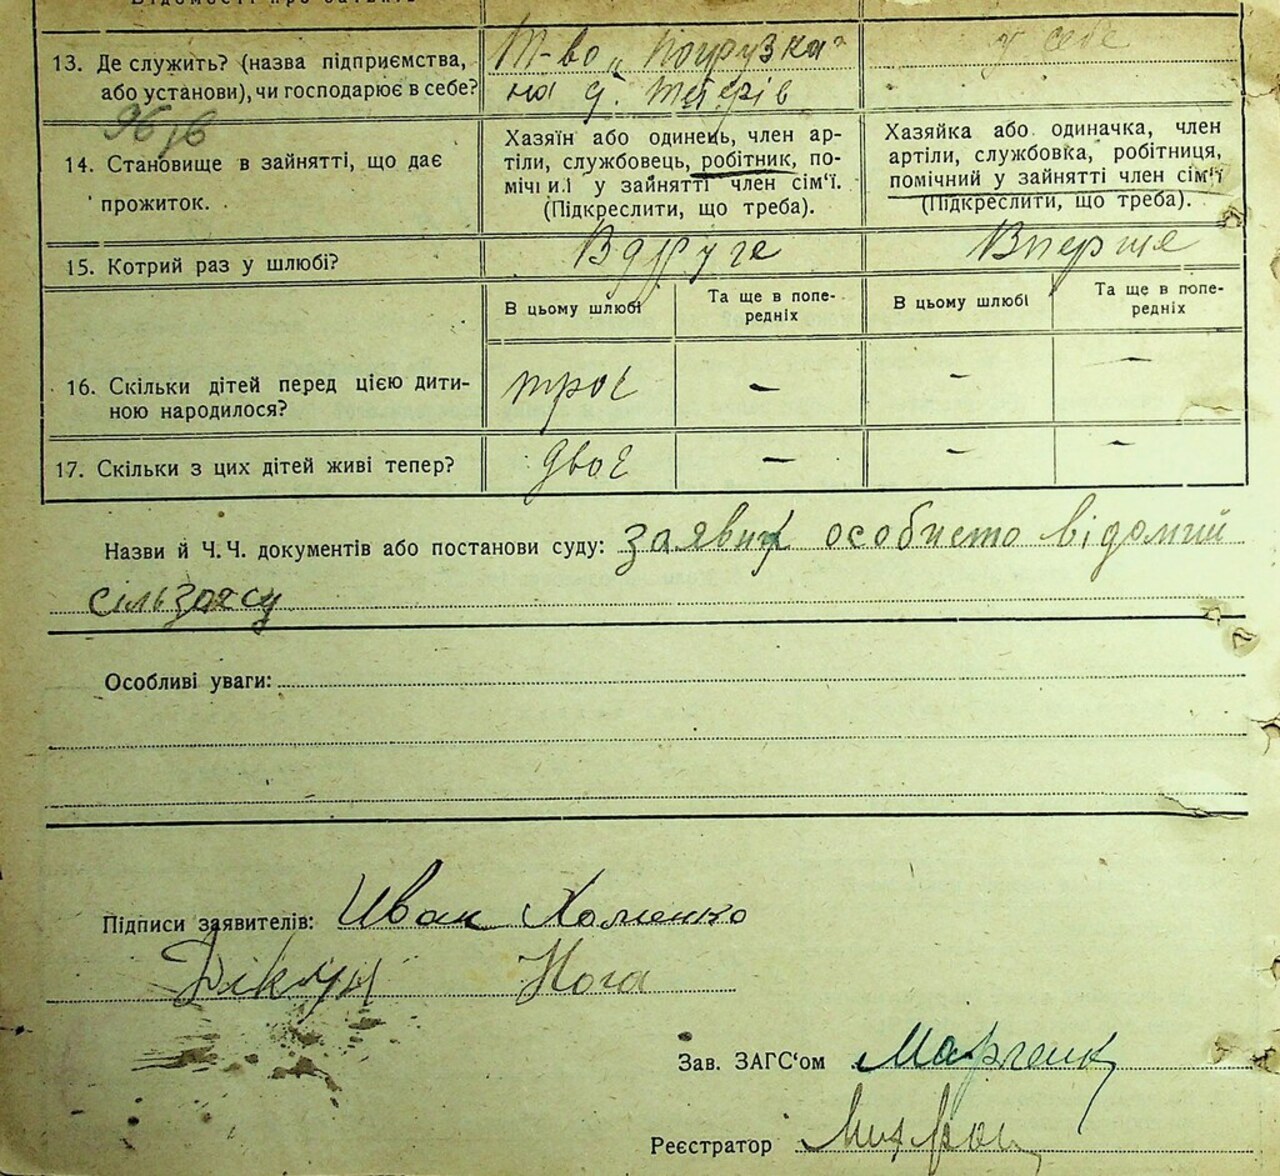 Відомості про батьків
13. Де служить? (назва підприємства, або установи), чи господарює в себе?
Т-во „Погрузка"
на д. Тетерів
у себе
14. Становище в зайнятті, що дає прожиток.
Хазяїн або одинець, член ар-
тіли, службовець, робітник, по-
мічни.і у зайнятті член сім'ї.
(Підкреслити, що треба).
Хазяйка або одиначка, член
артіли, службовка, робітниця,
помічний у зайнятті член сім'ї
(Підкреслити, що треба).
15. Котрий раз у шлюбі?
Вдруге
Вперше
В цьому шлюбі
Та ще в попе-
редніх
В цьому шлюбі
Та ще в попе-
редніх
16. Скільки дітей перед цією дити-
ною народилося?
троє – – –
17. Скільки з цих дітей живі тепер?
двоє – – –
Назви й Ч.Ч. документів або постанови суду: заявник особисто відомий
сільзагсу
Особливі уваги:
Підписи заявителів: Иван Хоменко
Дікун Нога
Зав. ЗАГС'ом Марченк
Реєстратор